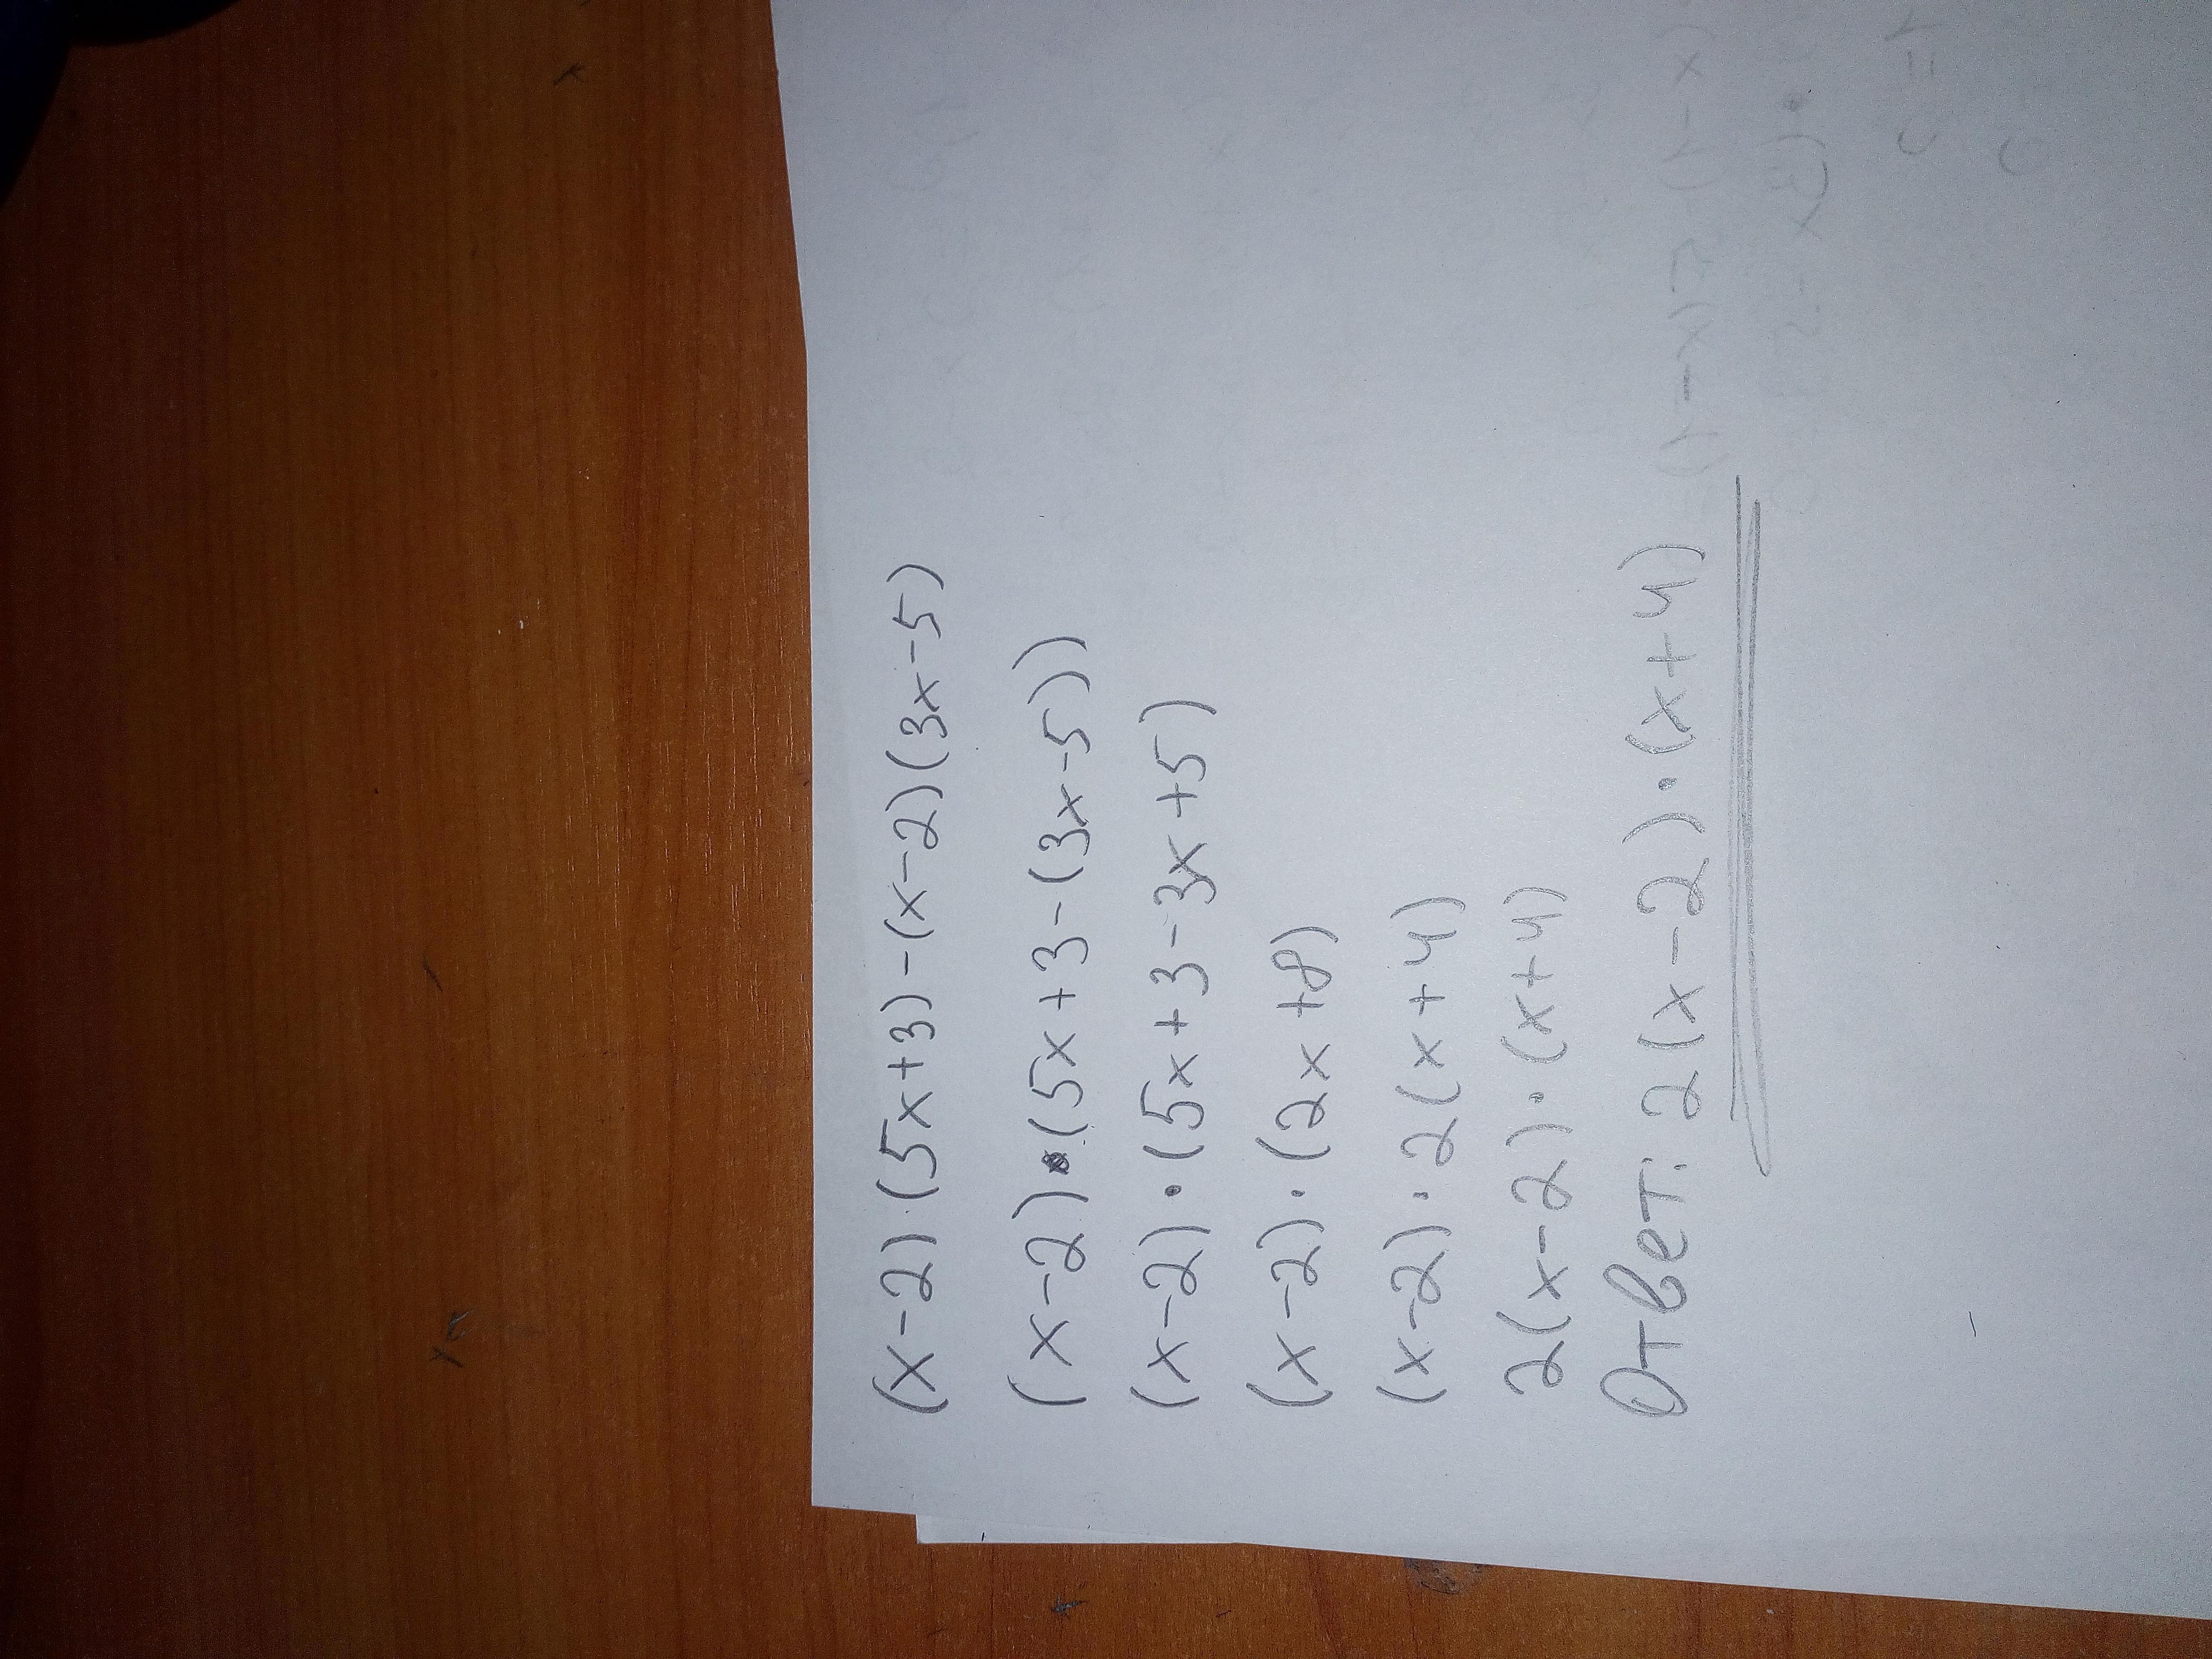 (x-2)(5x+3)-(x-2)(3x-5)
(x-2)·(5x+3-(3x-5))
(x-2)·(5x+3-3x+5)
(x-2)·(2x+8)
(x-2)·2(x+4)
2(x-2)·(x+4)
Ответ: 2(x-2)·(x+4)